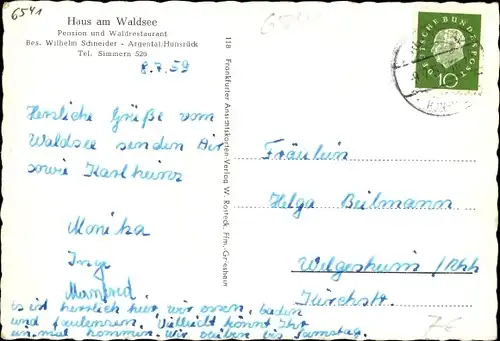 6541
Haus am Waldsee
Pension und Waldrestaurant
Bes. Wilhelm Schneider - Argental/Hunsrück
Tel. Simmern 526
8.7.59
Herzliche Grüße vom
Waldsee senden Dir
sowie Karlheinz
Monika
Inge
Manfred
es ist herrlich hier wir essen, baden
und faulenzen. Vielleicht könnt Ihr
ein mal kommen. Wir bleiben bis Samstag.
118 Frankfurter Ansichtskarten-Verlag W. Rosteck, Ffm.-Griesheim
6541
DEUTSCHE BUNDESPOST
10
Fräulein
Helga Beilmann
Welgesheim /Rhh
Kirchstr.
7€